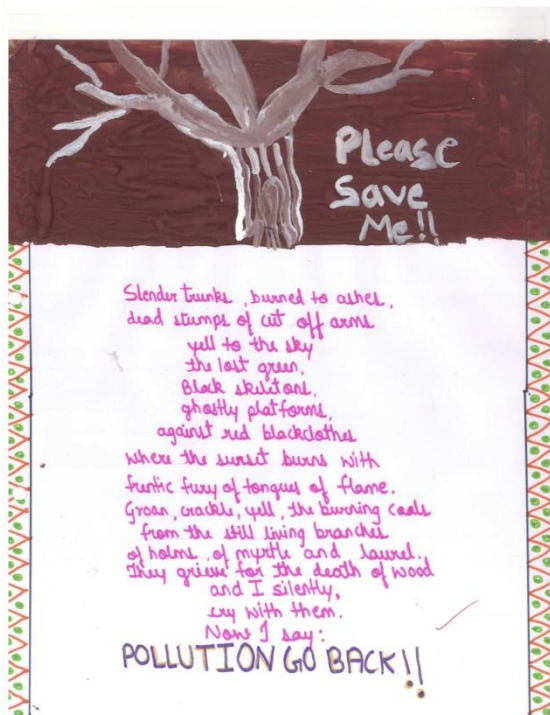 Please
Save
Me!!
Slender trunks, burned to ashes,
dead stumps of cut off arms
yell to the sky
the lost green,
Black skeletons,
ghostly platforms,
against red blackclothes
where the sunset burns with
frentic fury of tongues of flame.
Groan, crackle, yell, the burning coals
from the still living branches
of holms, of myrtle and laurel.
They grieve for the death of wood
and I silently,
cry with them.
Now I say:
POLLUTION GO BACK!!